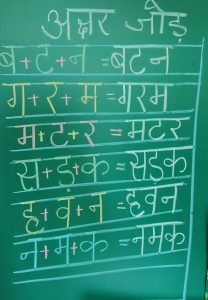 अक्षर जोड़
ब+ट+न=बटन
ग+र+म=गरम
म+ट+र=मटर
स+ड़+क=सड़क
ह+व+न=हवन
न+म+क=नमक